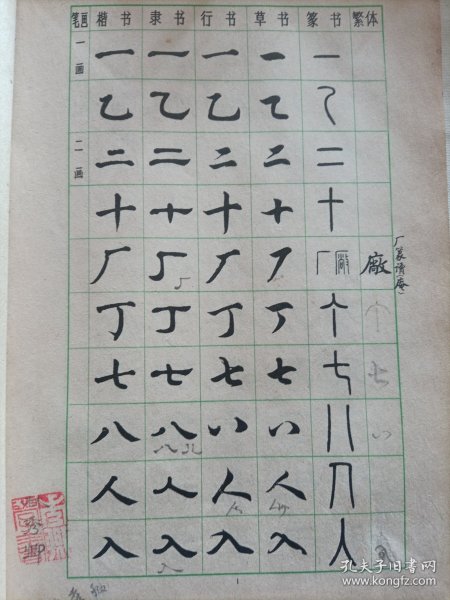 笔画 楷书 隶书 行书 草书 篆书 繁体
一画 一 一 一 一 一
乙 乙 乙 乙 乙
二画 二 二 二 二 二
十 十 十 十 十
厂 厂 厂 厂 厂 廠 廠
丁 丁 丁 丁 丁
七 七 七 七 七 七
八 八 八 八 八
人 人 人 人 人
入 入 入 入 入
1
孔夫子旧书网